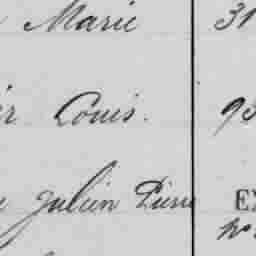 Marie 31
Louis. 93
Julien Pierre EX